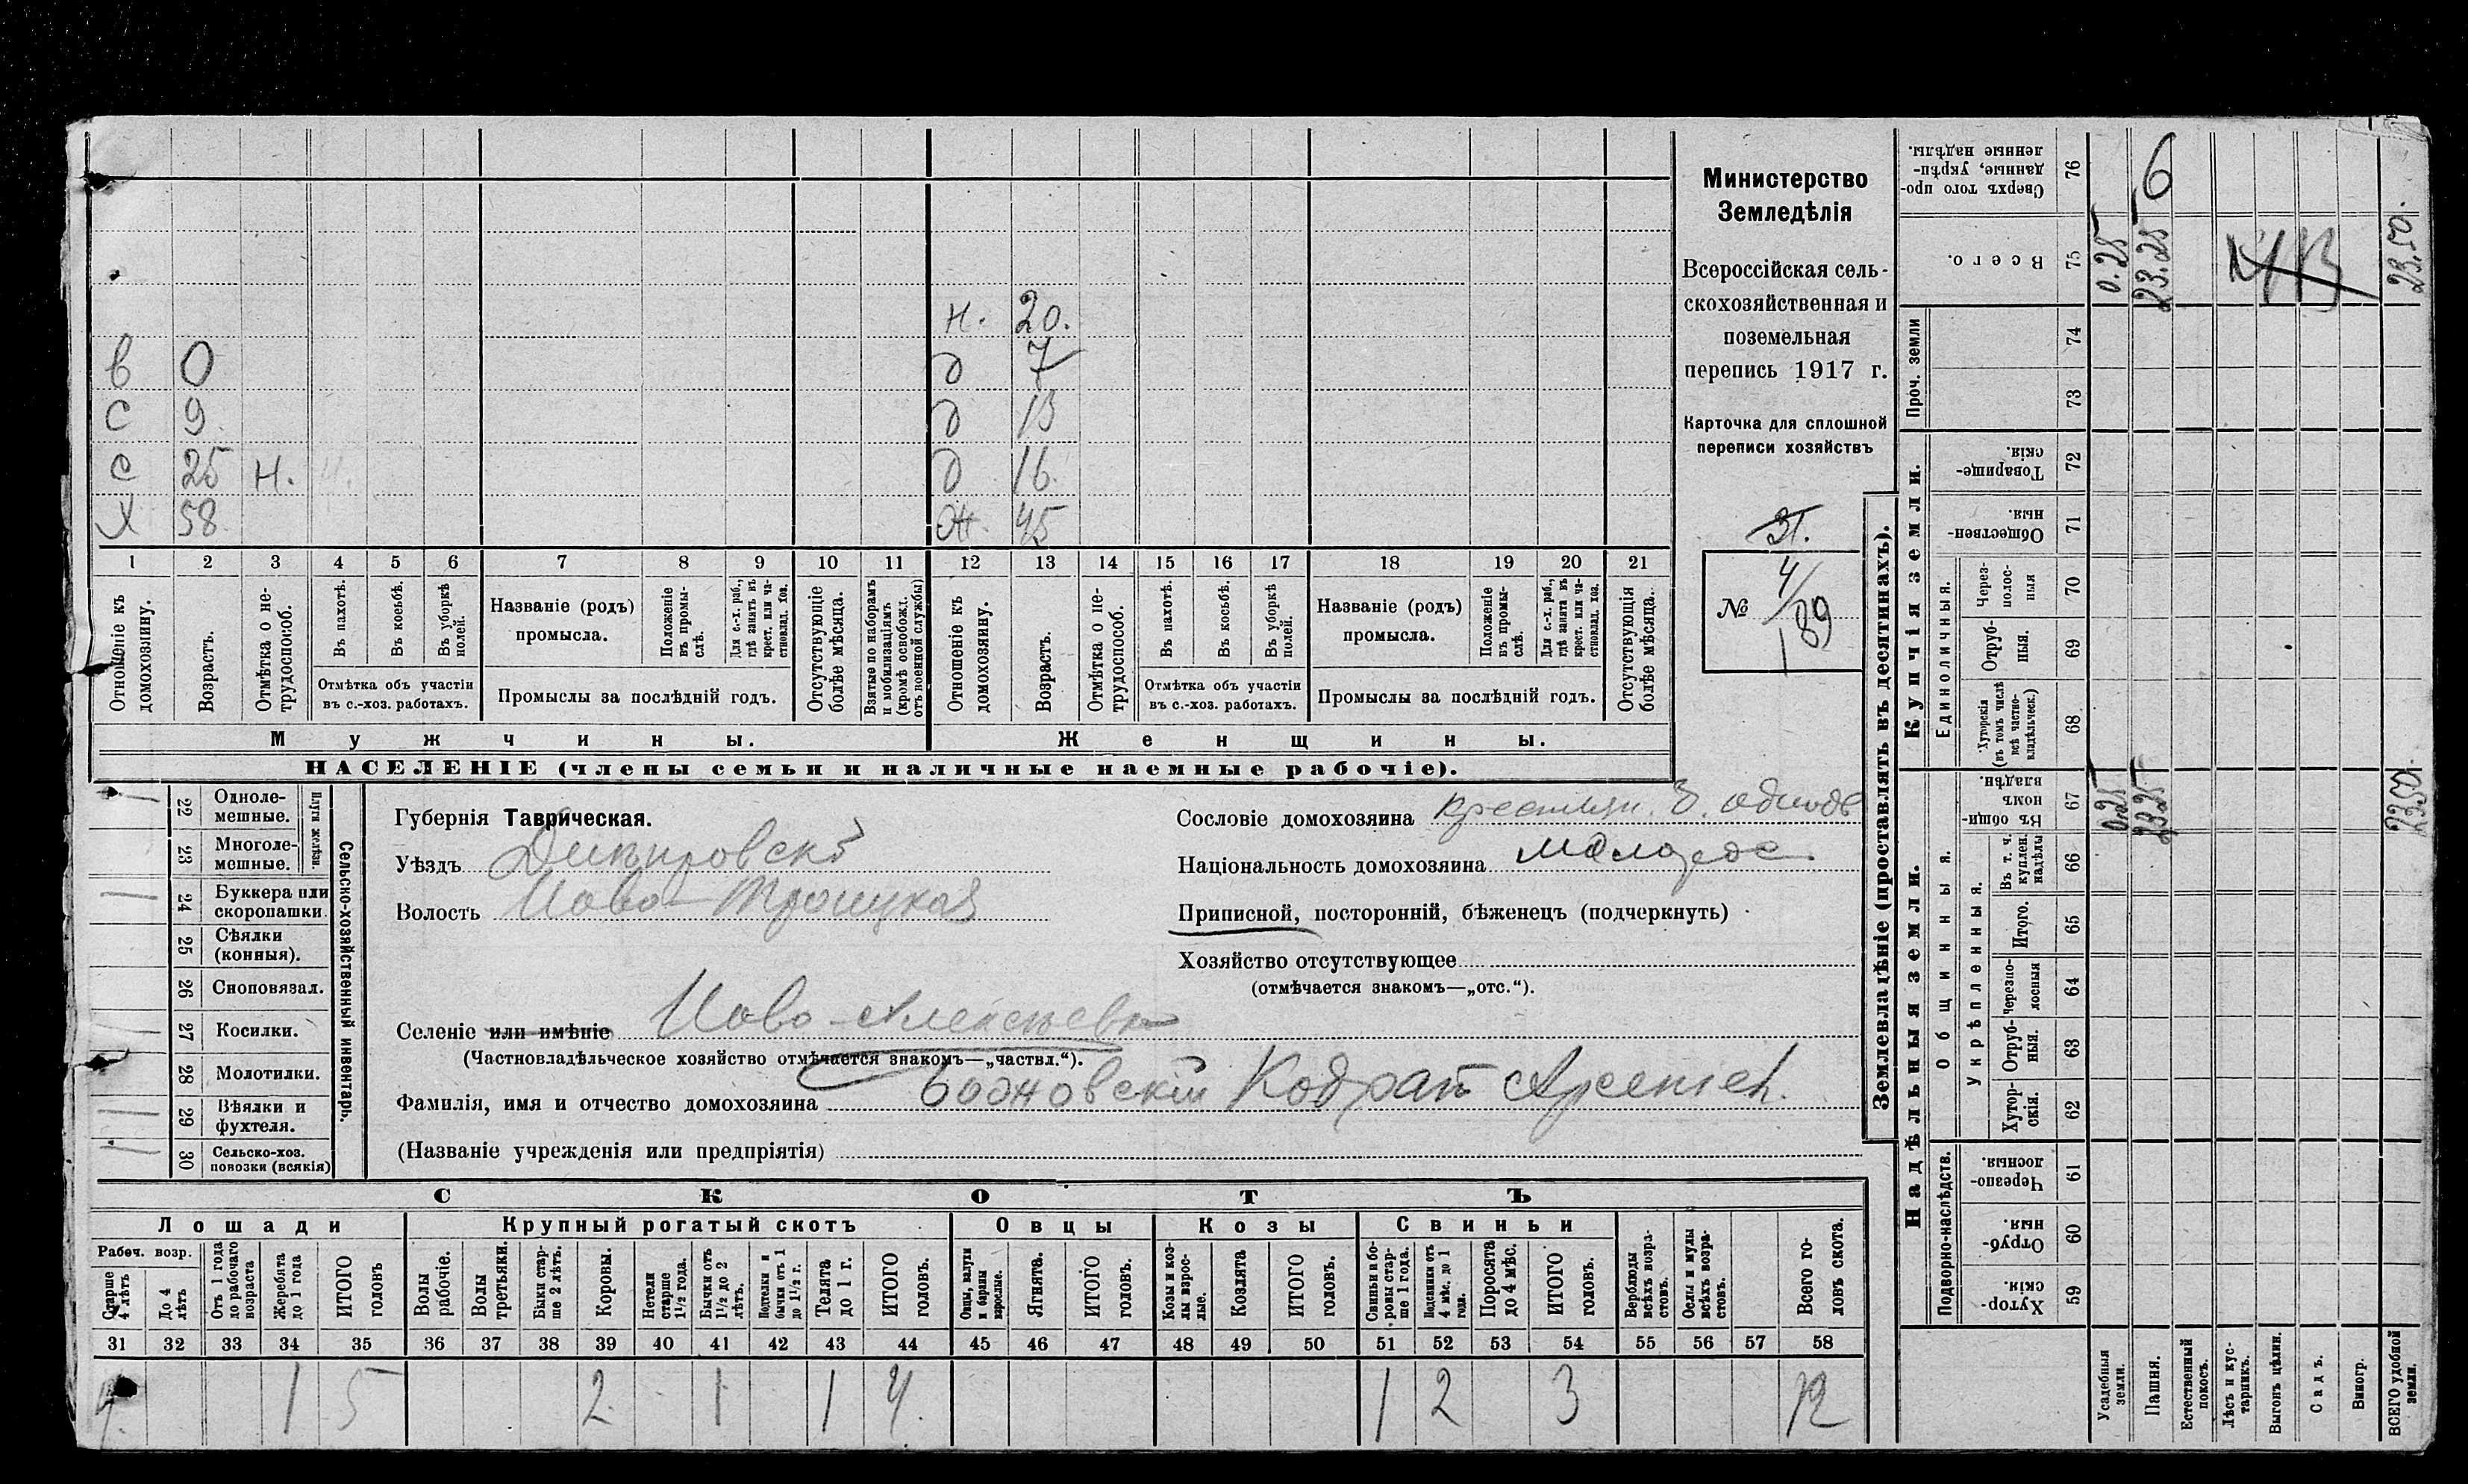 Министерство
Земледѣлія
Всероссійская сель-
скохозяйственная и
поземельная
перепись 1917 г.
Карточка для сплошной
переписи хозяйствъ
31.
№ 4/189
н. 20.
в 0 д 7
с 9 д 13
с 25 н. д 16
Х 58 Ж. 45
1 2 3 4 5 6 7 8 9 10 11 12 13 14 15 16 17 18 19 20 21
Отношеніе къ домохозяину.
Возрастъ.
Отмѣтка о не-трудоспособ.
Въ пахотѣ.
Въ косьбѣ.
Въ уборкѣ полей.
Отмѣтка объ участіи въ с.-хоз. работахъ.
Названіе (родъ) промысла.
Положеніе въ промы-слѣ.
Для с.-х. раб., гдѣ занятъ въ крест. или ча-стновлад. хоз.
Промыслы за послѣдній годъ.
Отсутствующіе болѣе мѣсяца.
Взятые по наборамъ и мобилизаціямъ (кромѣ освобожд. отъ военной службы)
Отношеніе къ домохозяину.
Возрастъ.
Отмѣтка о не-трудоспособ.
Въ пахотѣ.
Въ косьбѣ.
Въ уборкѣ полей.
Отмѣтка объ участіи въ с.-хоз. работахъ.
Названіе (родъ) промысла.
Положеніе въ промы-слѣ.
Для с.-х. раб., гдѣ занята въ крест. или ча-стновлад. хоз.
Промыслы за послѣдній годъ.
Отсутствующія болѣе мѣсяца.
Мужчины. Женщины.
НАСЕЛЕНІЕ (члены семьи и наличные наемные рабочіе).
Сельско-хозяйственный инвентарь.
Плуги желѣзн.
22 Одноле-мешные.
23 Многоле-мешные.
24 Буккера или скоропашки.
25 Сѣялки (конныя).
26 Сноповязал.
27 Косилки.
28 Молотилки.
29 Вѣялки и фухтеля.
30 Сельско-хоз. повозки (всякія)
Губернія Таврическая.
Уѣздъ Днѣпровскъ
Волость Ново-Троицкая
Селеніе или имѣніе Ново-Алексѣевк
(Частновладѣльческое хозяйство отмѣчается знакомъ—„частвл.“).
Фамилія, имя и отчество домохозяина Кодратъ Арсеніев.
(Названіе учрежденія или предпріятія)
Сословіе домохозяина крестьян.
Національность домохозяина Малорос.
Приписной, посторонній, бѣженецъ (подчеркнуть)
Хозяйство отсутствующее
(отмѣчается знакомъ—„отс.“).
СКОТЪ
Лошади Крупный рогатый скотъ Овцы Козы Свиньи
Рабоч. возр.
Старше 4 лѣтъ
До 4 лѣтъ
Отъ 1 года до рабочаго возраста
Жеребята до 1 года
ИТОГО головъ
Волы рабочіе.
Волы третьяки.
Быки стар-ше 2 лѣтъ.
Коровы.
Нетели старше 1½ года.
Бычки отъ 1½ до 2 лѣтъ.
Подтелки и бычки отъ 1 до 1½ г.
Телята до 1 г.
ИТОГО головъ.
Овцы, валухи и бараны взрослые.
Ягнята.
ИТОГО головъ.
Козы и коз-лы взрос-лые.
Козлята
ИТОГО головъ.
Свиньи и бо-ровы стар-ше 1 года.
Подсвинки отъ 4 мѣс. до 1 года.
Поросята до 4 мѣс.
ИТОГО головъ.
Верблюды всѣхъ возра-стовъ.
Ослы и мулы всѣхъ возра-стовъ.
Всего го-ловъ скота.
31 32 33 34 35 36 37 38 39 40 41 42 43 44 45 46 47 48 49 50 51 52 53 54 55 56 57 58
4 1 5 2 1 1 4 1 2 3 12
Землевладѣніе (проставлять въ десятинахъ).
Надѣльныя земли. Купчія земли. Проч. земли
Подворно-наслѣдств.
Общинныя.
Укрѣпленныя.
Единоличныя.
59 Хутор-скія.
60 Отруб-ныя.
61 Черезпо-лосныя.
62 Хутор-скія.
63 Отруб-ныя.
64 Черезпо-лосныя
65 Итого.
66 Въ т. ч. куплен. надѣлы
67 Въ общин-номъ владѣн.
68 Хуторскія (въ томъ числѣ всѣ частно-владѣльческ.)
69 Отруб-ныя.
70 Через-полос-ныя
71 Обществен-ныя.
72 Товарище-скія.
73
74
75 Всего.
76 Сверхъ того про-данные, укрѣп-ленные надѣлы.
Усадебныя земли. 0.25 0.25
Пашня. 23.25 23.25 6
Естественный покосъ.
Лѣсъ и кус-тарникъ.
Выгонъ цѣлин.
Садъ.
Виногр.
ВСЕГО удобной земли. 23.50. 23.50.